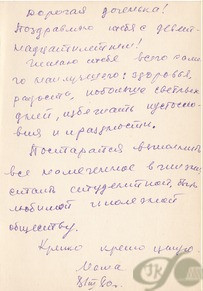 Дорогая доченька!
Поздравляю тебя с девят-
надцатилетием!
Желаю тебе всего само-
го наилучшего: здоровья,
радости, побольше светлых
дней, избежать пустосло-
вия и праздности.
Постарайся выполнить
все намеченное в жизни,
стать студенткой, быть
любимой и полезной
обществу.
Крепко крепко целую.
Мама